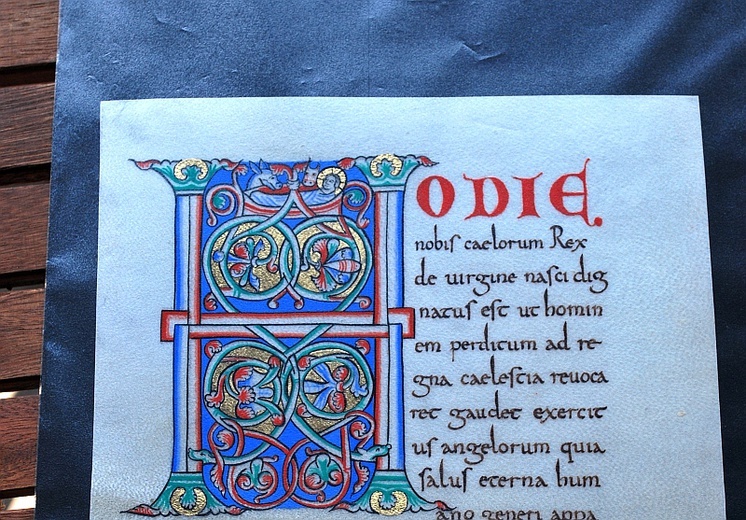 HODIE.
nobis caelorum Rex
de uirgine nasci dig
natus est ut homin
em perditum ad re-
gna caelestia reuoca
ret gaudet exercit
us angelorum quia
salus eterna hum
ano generi appa